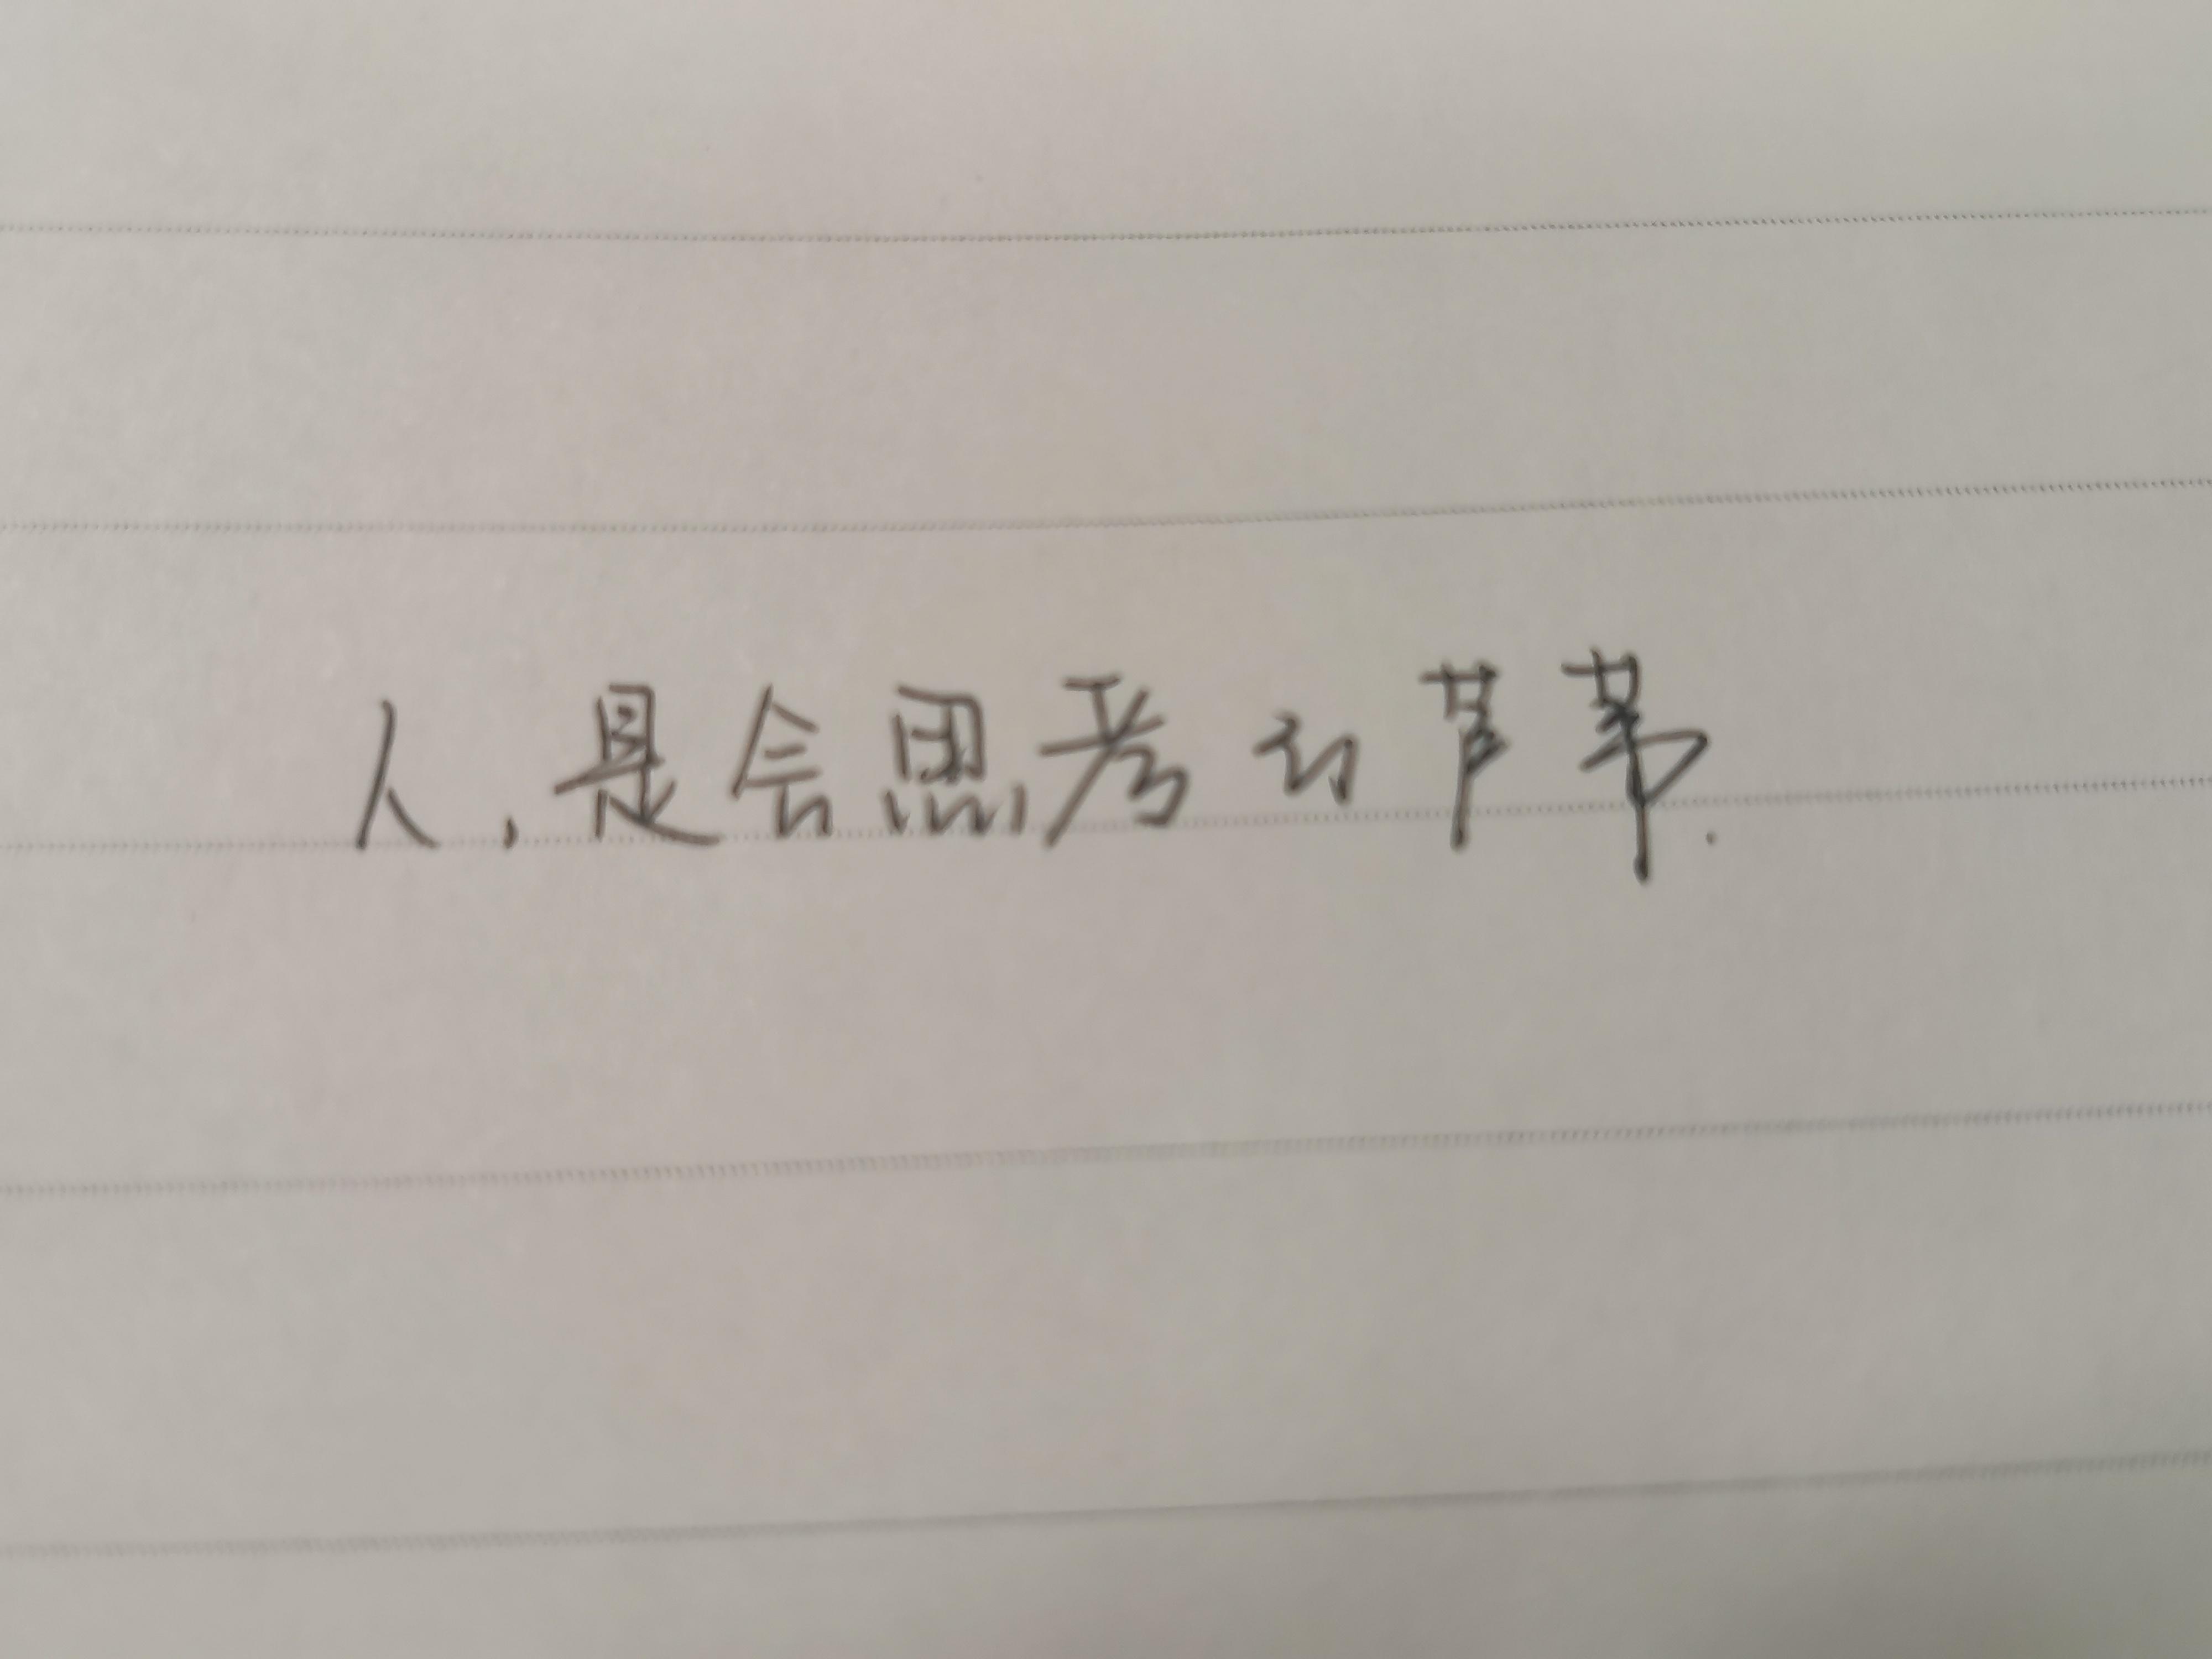 人,是会思考的芦苇.